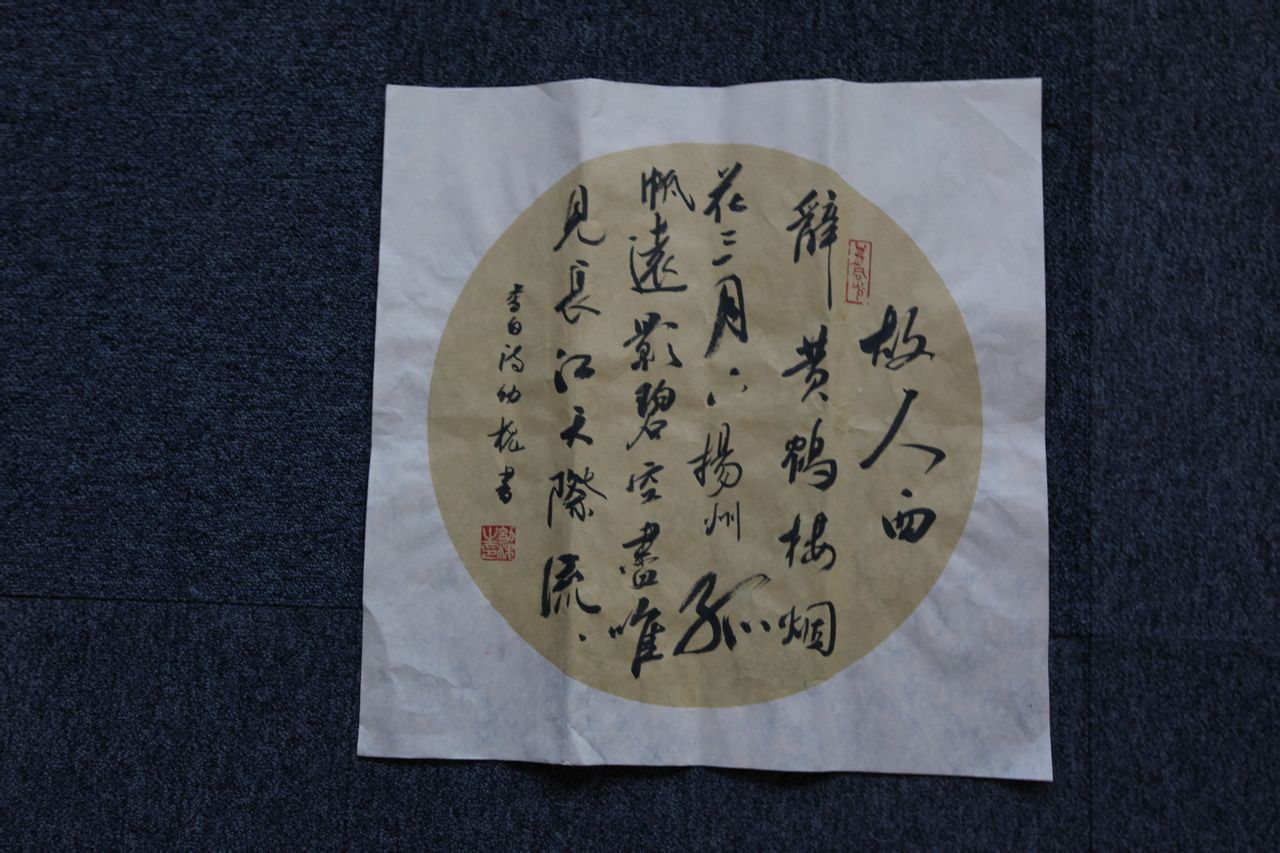 故人西
辞黄鹤楼烟
花三月下揚州孤
帆遠影碧空盡唯
見長江天際流
李白詩幼桄書